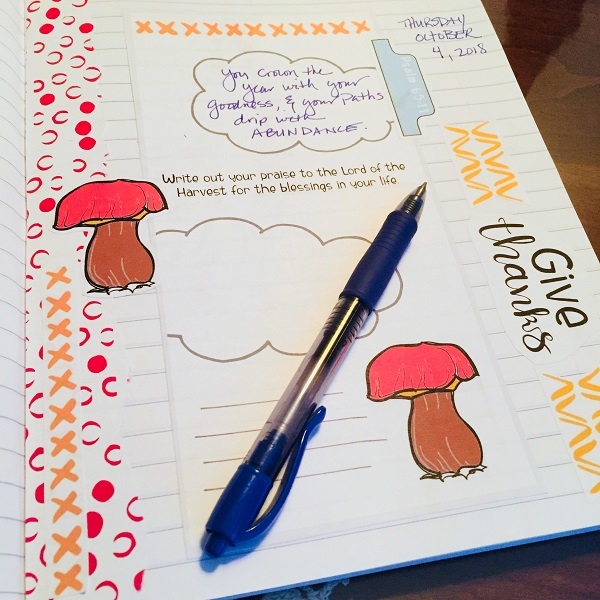 THURSDAY
OCTOBER
4, 2018
you crown the
year with your
goodness, & your paths
drip with
ABUNDANCE.
Psalm
Write out your praise to the Lord of the
Harvest for the blessings in your life.
Give
thanks